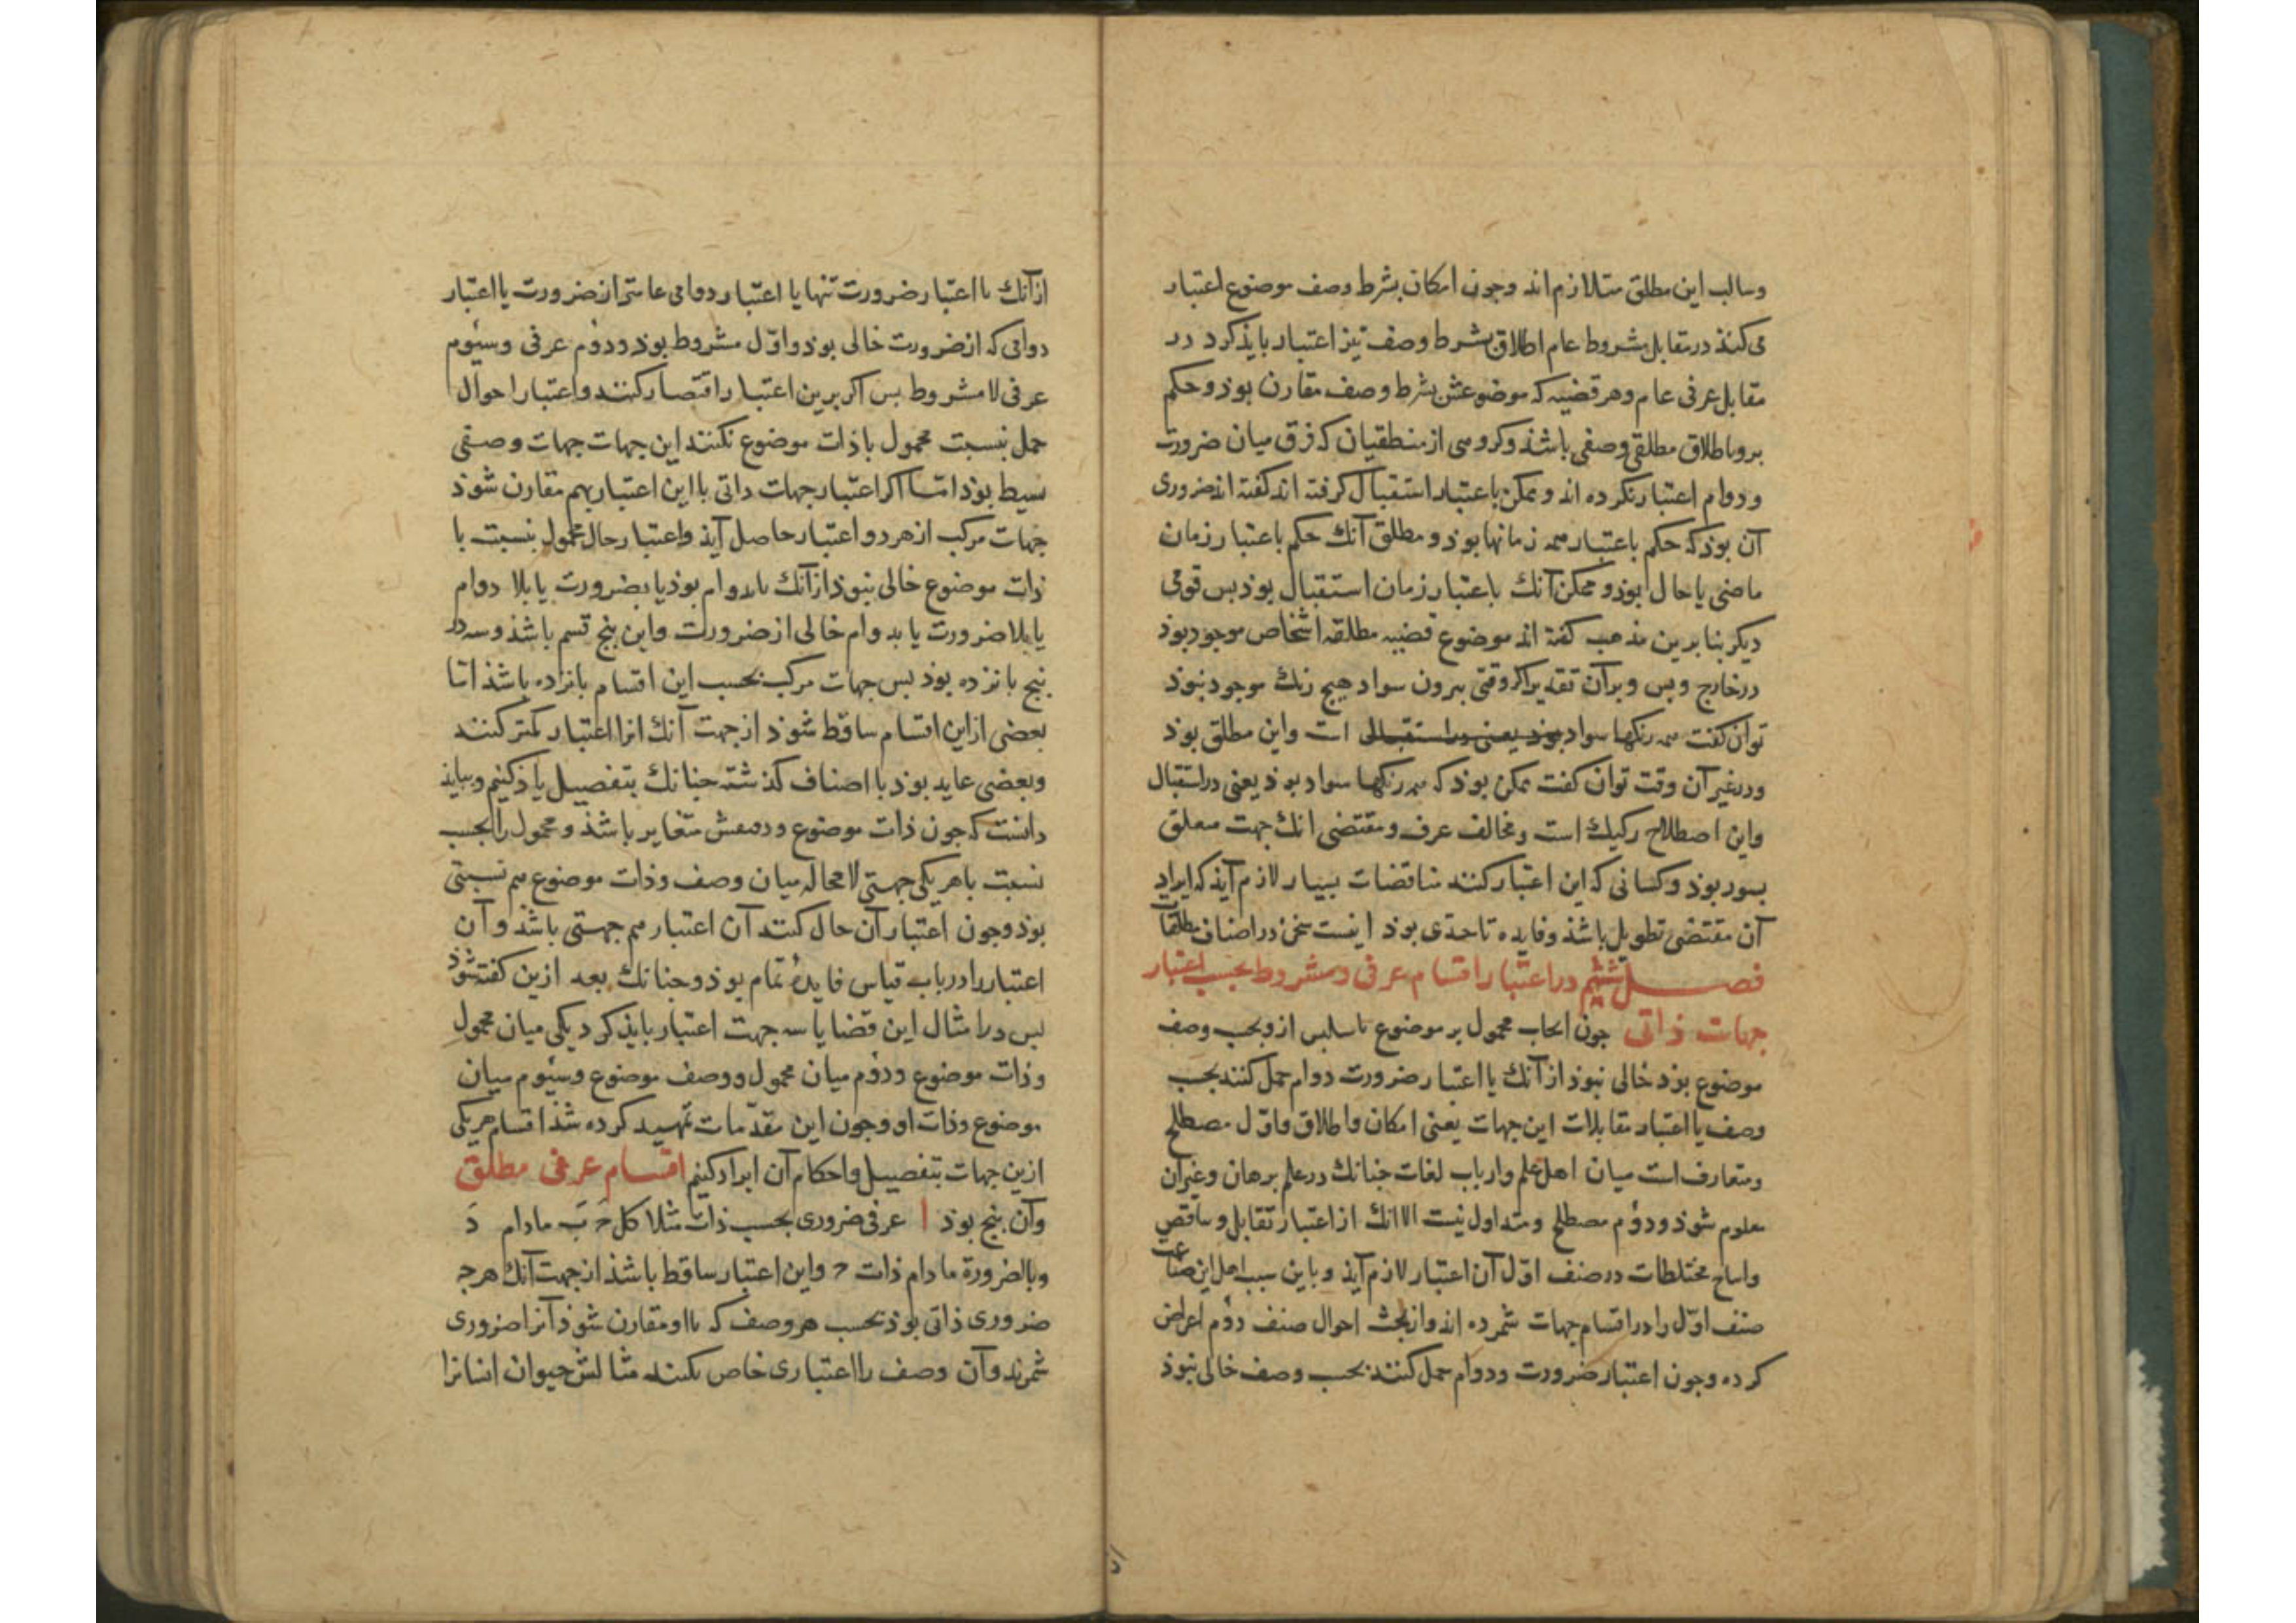 وسالب این مطلق متلازم اند وجون امکان بشرط وصف موضوع اعتبار
می کنند در مقابل مشروط عام اطلاق بشرط وصف نیز اعتبار بایذ کرد در
مقابل عرفی عام وهر قضیه که موضوعش بشرط وصف مقارن بوذ وحکم
برو باطلاق مطلقی وصفی باشذ وکروهی از منطقیان که فرق میان ضرورت
ودوام اعتبار نکرده اند وممکن باعتبار استقبال کرفته اند کفته اند ضروری
آن بوذ که حکم باعتبار همه زمانها بوذ ومطلق آنک حکم باعتبار زمان
ماضی یا حال بوذ وممکن آنک باعتبار زمان استقبال بوذ بس قومی
دیکر بنا برین مذهب کفته اند موضوع قضیه مطلقه اشخاص موجود بوذ
در خارج وبس وبر آن تقدیر اکر وقتی بیرون سواد هیج رنک موجود نبوذ
توان کفت همه رنکها سواد بوذ یعنی در استقبال است واین مطلق بوذ
ودر غیر آن وقت توان کفت ممکن بوذ که همه رنکها سواد بوذ یعنی در استقبال
واین اصطلاح رکیک است ومخالف عرف ومقتضی انک جهت متعلق
بسور بوذ وکسانی که این اعتبار کنند مناقضات بسیار لازم آیذ که ایراد
آن مقتضی تطویل باشذ وفایده تا حدی بوذ اینست سخن در اصناف مطلقات
فصل ششم در اعتبار اقسام عرفی ومشروط بحسب اعتبار
جهات ذاتی جون ایجاب محمول بر موضوع یا سلبش ازو بحسب وصف
موضوع بوذ خالی نبوذ از آنک یا اعتبار ضرورت دوام حمل کنند بحسب
وصف یا اعتبار مقابلات این جهات یعنی امکان واطلاق واول مصطلح
ومتعارف است میان اهل علم وارباب لغات جنانک در علم برهان وغیر آن
معلوم شوذ ودوم مصطلح ومتداول نیست الا انک از اعتبار تقابل وتناقض
وانتاج مختلطات در صنف اول آن اعتبار لازم آیذ وباین سبب اهل این صناعت
صنف اول را در اقسام جهات شمرده اند واز بحث احوال صنف دوم اعراض
کرده وجون اعتبار ضرورت ودوام حمل کنند بحسب وصف خالی نبوذ
از آنک یا اعتبار ضرورت تنها یا اعتبار دوامی عامتر از ضرورت یا اعتبار
دوامی که از ضرورت خالی بوذ واول مشروط بوذ ودوم عرفی وسیوم
عرفی لا مشروط بس اکر برین اعتبار اقتصار کنند واعتبار احوال
حمل بنسبت محمول با ذات موضوع نکنند این جهات جهات وصفی
بسیط بوذ اما اکر اعتبار جهات ذاتی با این اعتبار بهم مقارن شوذ
جهات مرکب از هر دو اعتبار حاصل آیذ واعتبار حال محمول بنسبت با
ذات موضوع خالی نبوذ از آنک یا بدوام بوذ یا بضرورت یا بلا دوام
یا بلا ضرورت یا بدوام خالی از ضرورت واین بنج قسم باشذ وسه در
بنج بانزده بوذ بس جهات مرکب بحسب این اقسام بانزده باشذ اما
بعضی از این اقسام ساقط شوذ از جهت آنک انرا اعتبار کمتر کنند
وبعضی عاید بوذ با اصناف کذشته جنانک بتفصیل یاذ کنیم وببایذ
دانست که جون ذات موضوع ووصفش متغایر باشذ ومحمول را بحسب
نسبت با هر یکی جهتی لا محاله میان وصف وذات موضوع هم نسبتی
بوذ وجون اعتبار آن حال کنند آن اعتبار هم جهتی باشذ وآن
اعتبار را در باب قیاس فایدهٔ تمام بوذ وجنانک بعد ازین کفته شوذ
بس در امثال این قضایا سه جهت اعتبار بایذ کرد یکی میان محمول
وذات موضوع ودوم میان محمول ووصف موضوع وسیوم میان
موضوع وذات او وجون این مقدمات تمهید کرده شذ اقسام هر یکی
ازین جهات بتفصیل واحکام آن ایراد کنیم اقسام عرفی مطلق
وآن بنج بوذ ا عرفی ضروری بحسب ذات مثلا کل ج ب مادام د
وبالضرورة مادام ذات ج واین اعتبار ساقط باشذ از جهت آنک هرجه
ضروری ذاتی بوذ بحسب هر وصف که با او مقارن شوذ آنرا ضروری
شمرند وآن وصف را اعتباری خاص نکنند مثالش حیوان انسانرا